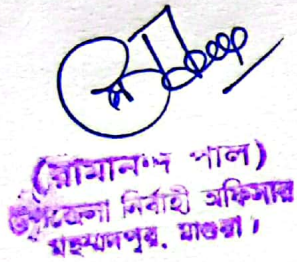 (রামানন্দ পাল)
উপজেলা নির্বাহী অফিসার
মহম্মদপুর, মাগুরা।